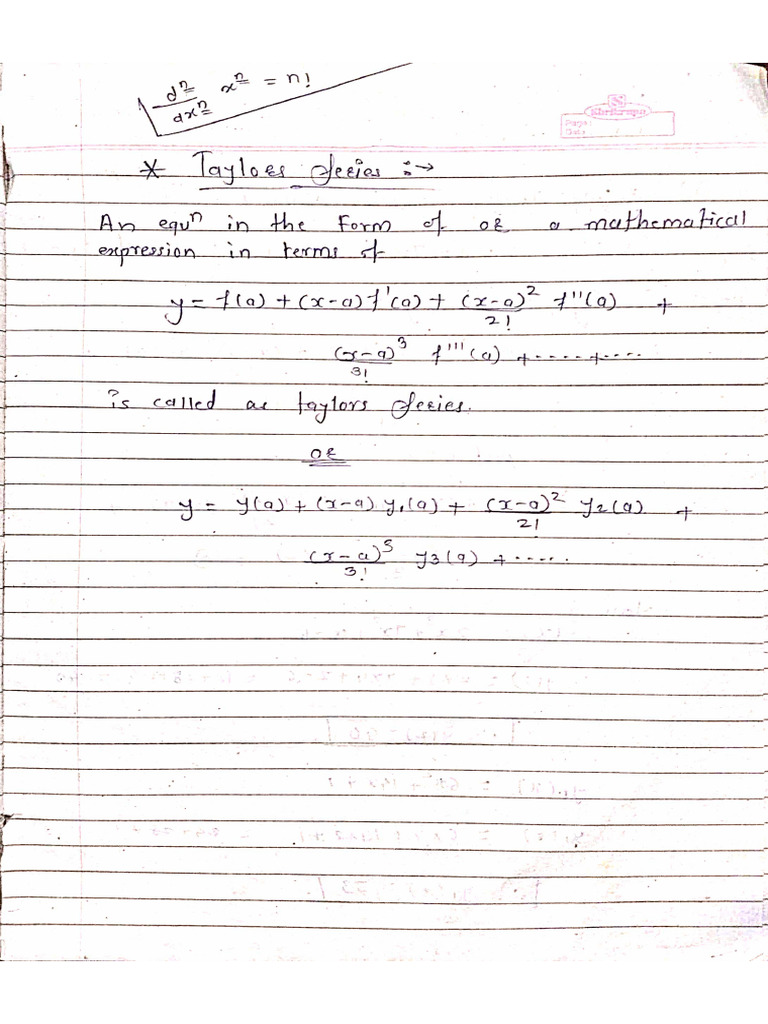 dⁿ/dxⁿ xⁿ = n!
Page:
Date:
* Taylors Series :→
An equⁿ in the Form of or a mathematical
expression in terms of
y = f(a) + (x-a) f'(a) + (x-a)²/2! f''(a) +
(x-a)³/3! f'''(a) + ..... + ....
is called as taylors Series.
or
y = y(a) + (x-a) y₁(a) + (x-a)²/2! y₂(a) +
(x-a)³/3! y₃(a) + .....